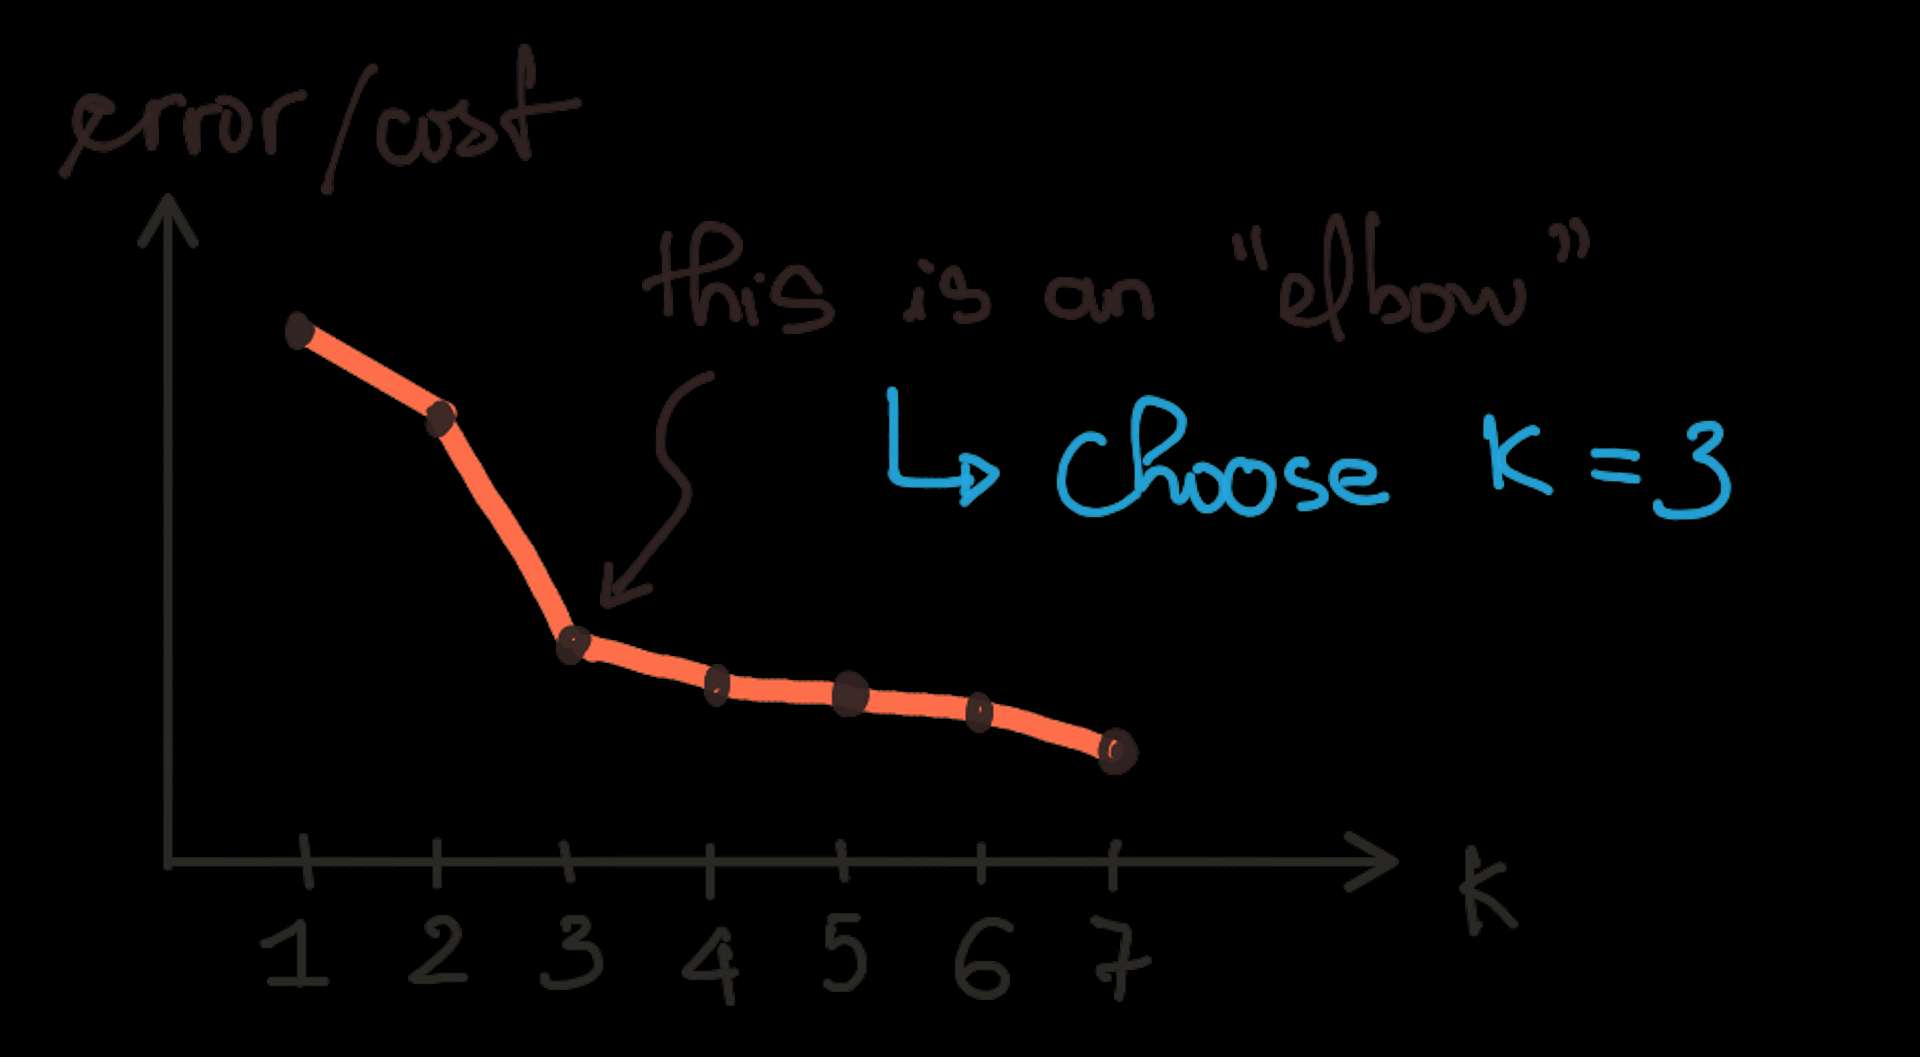 error/cost
this is an "elbow"
choose K = 3
1 2 3 4 5 6 7
K